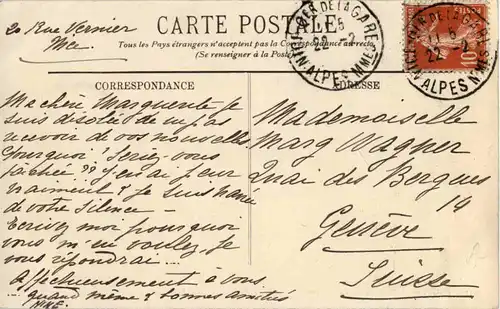 20 Rue Vernier
Nice
CARTE POSTALE
Tous les Pays étrangers n'acceptent pas la Correspondance au recto
(Se renseigner à la Poste)
CORRESPONDANCE
Ma chère Marguerite je
suis désolée de ne pas
recevoir de vos nouvelles
Pourquoi? Seriez-vous
fachée?? J'en ai peur
vraiment & je suis navrée
de votre silence —
Ecrivez moi pourquoi
vous m'en voulez, je
vous répondrai....
Affectueusement à vous
quand même & bonnes amitiés
ADRESSE
Mademoiselle
Marg Wagner
Quai des Bergues
14
Genève
Suisse
DE LA GARE
22 -2
ALPES MMES
POSTES
10
DE LA GARE
22 -2
ALPES MMES